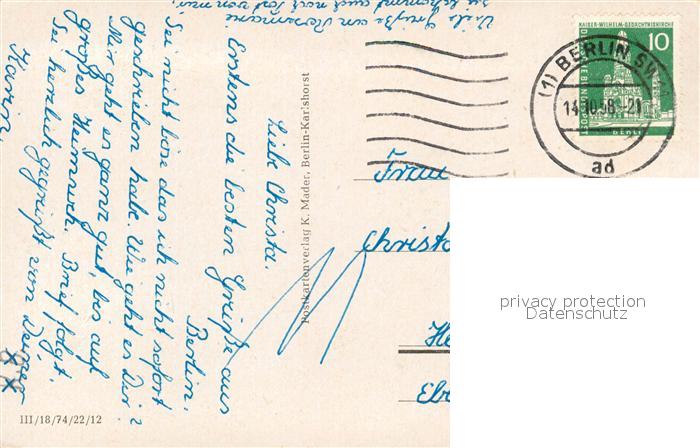 Liebe Christa.
Erstens die besten Grüße aus
Berlin.
Sei nicht böse das ich nicht sofort
geschrieben habe. Wie geht es Dir?
Mir geht es ganz gut, bis auf
großes Heimweh. Brief folgt.
Sei herzlich gegrüßt von Deiner
Karin.
xx
Viele Grüße an Rosemarie
sie bekommt auch noch Post von mir.
Postkartenverlag K. Mader, Berlin-Karlshorst
III/18/74/22/12
KAISER-WILHELM-GEDÄCHTNISKIRCHE
10
BERLIN
(1) BERLIN SW
14.10.58.-21
ad
Frau
Christa
He
Ebe
privacy protection
Datenschutz